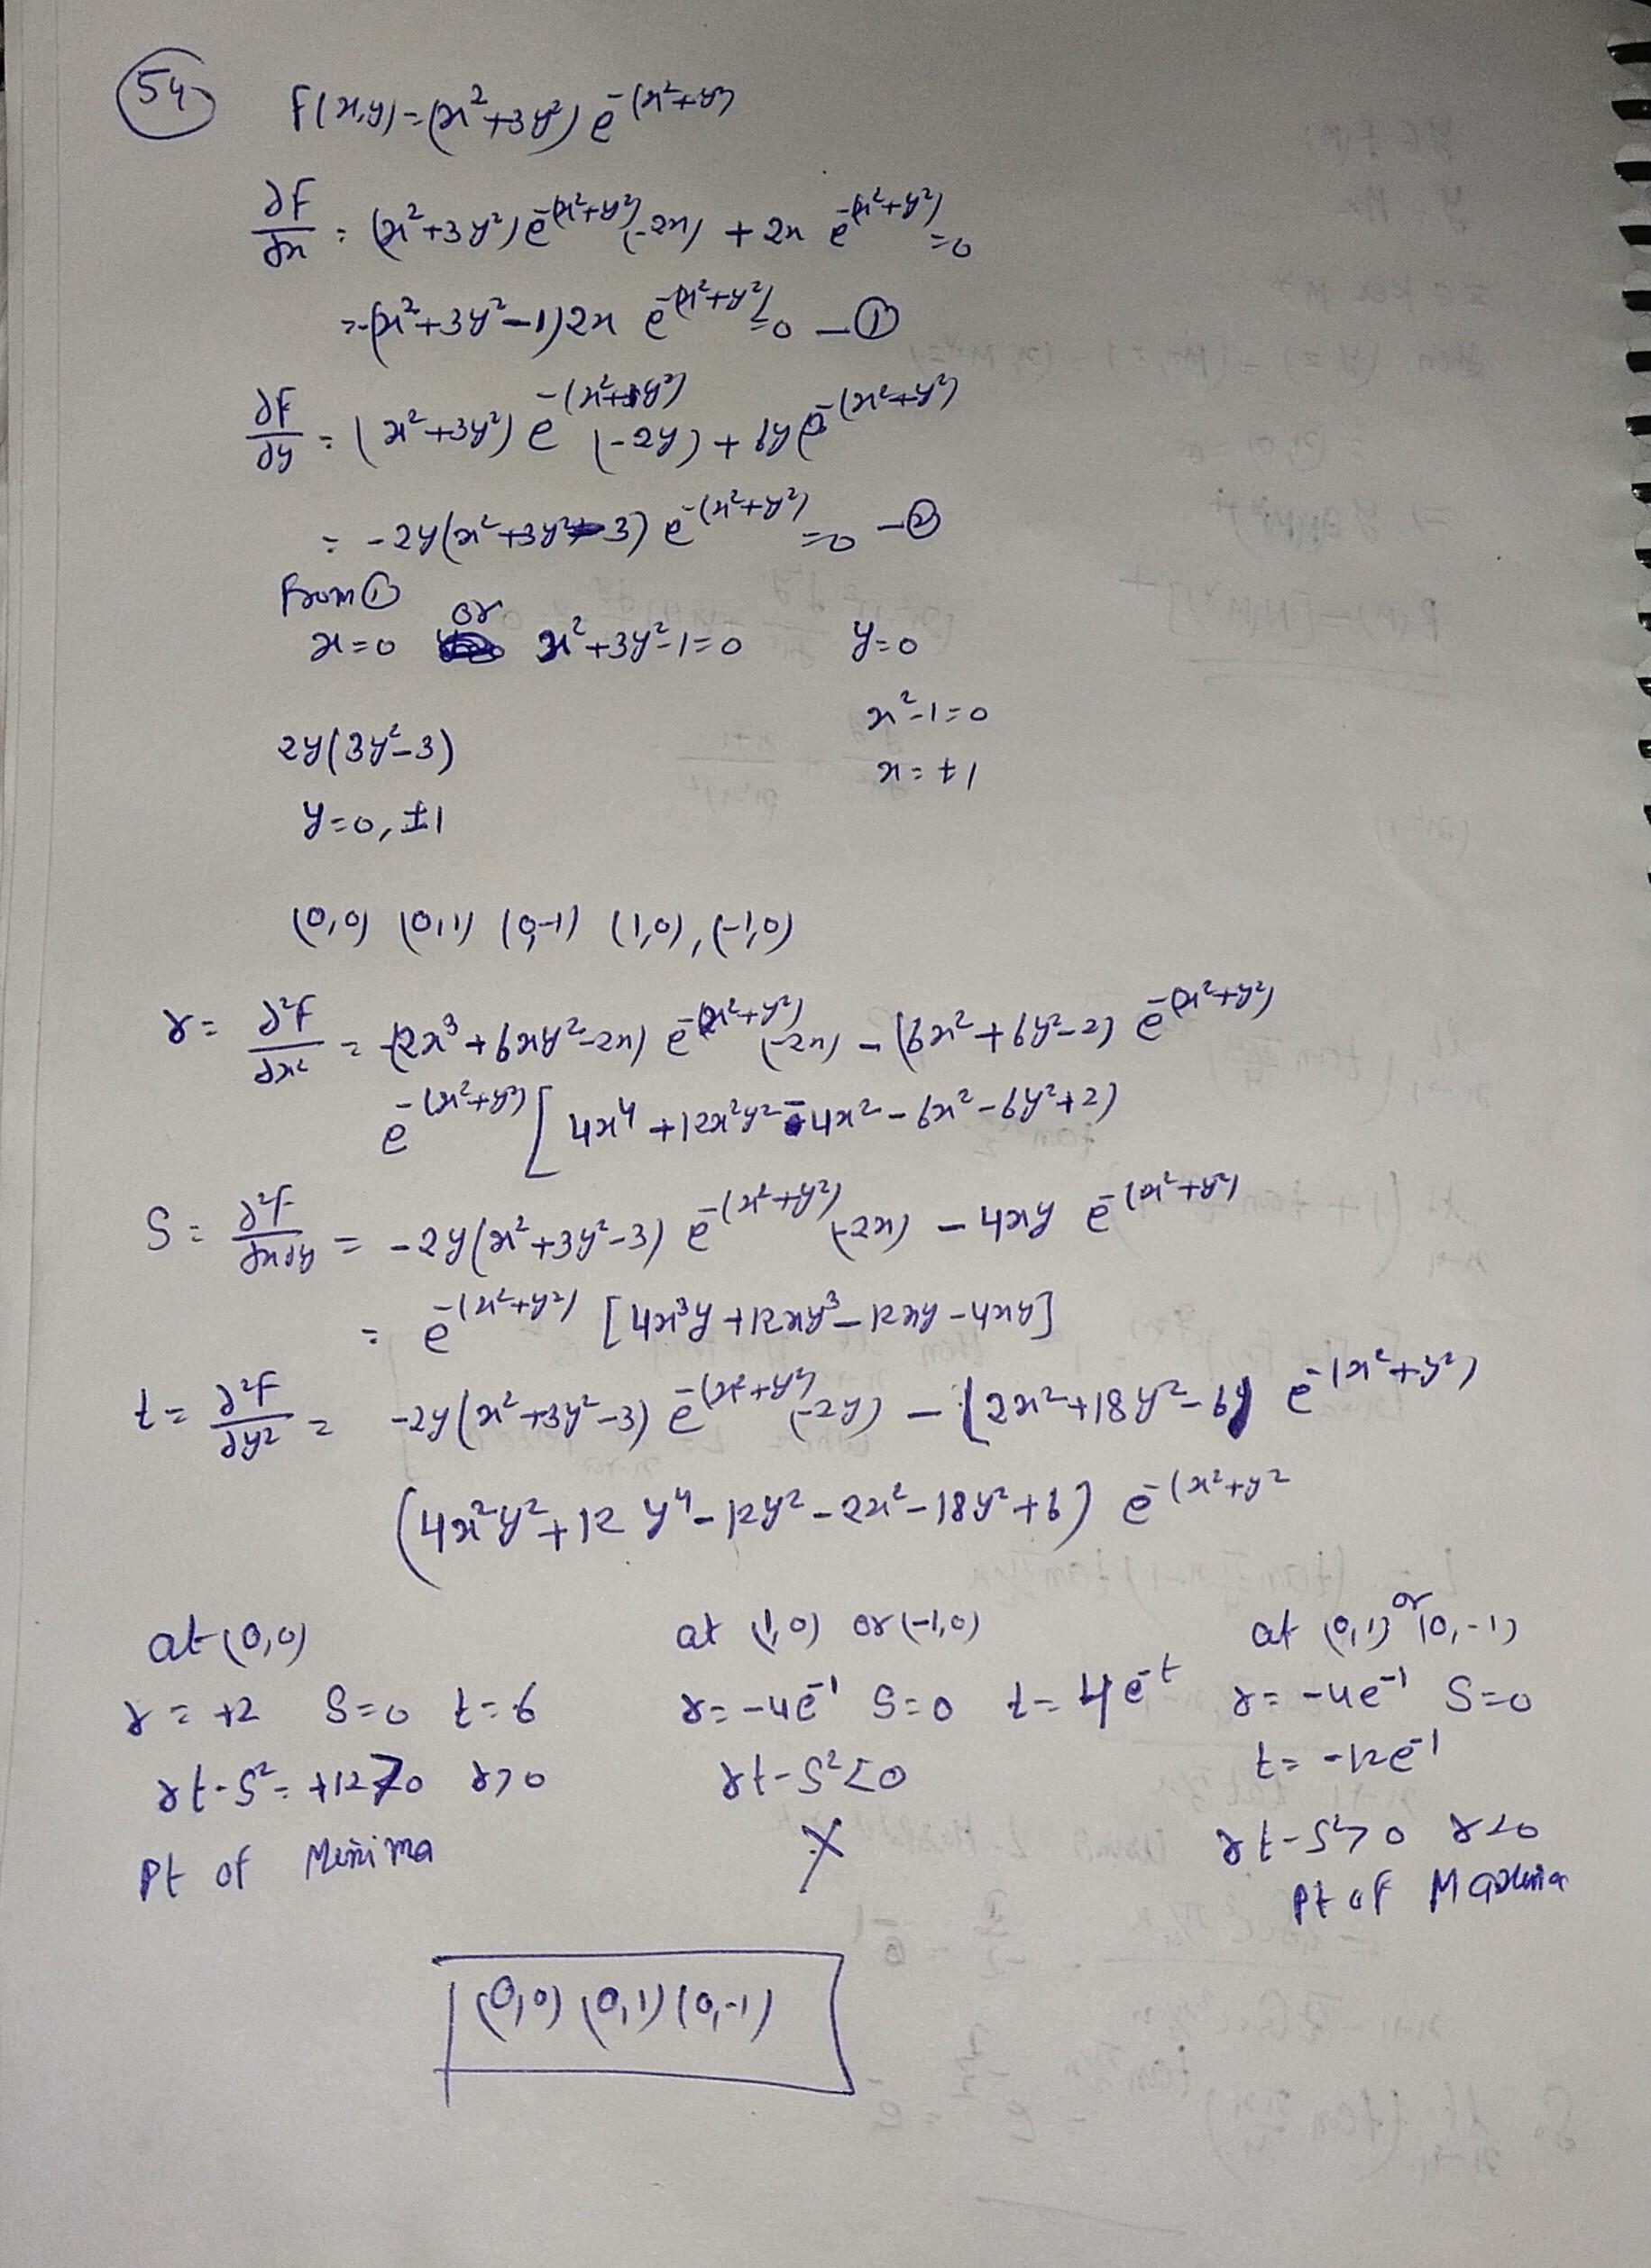 54
F(x,y) = (x²+3y²) e^-(x²+y²)
∂F/∂x = (x²+3y²) e^-(x²+y²) (-2x) + 2x e^-(x²+y²) = 0
= -(x²+3y²-1)2x e^-(x²+y²) = 0 – ①
∂F/∂y = (x²+3y²) e^-(x²+y²) (-2y) + 6y e^-(x²+y²)
= -2y(x²+3y²-3) e^-(x²+y²) = 0 – ②
From ①
x=0 or x²+3y²-1=0 y=0
x²-1=0
2y(3y²-3)
x=±1
y=0, ±1
(0,0) (0,1) (0,-1) (1,0), (-1,0)
r = ∂²F/∂x² = -(2x³+6xy²-2x) e^-(x²+y²) (-2x) - (6x²+6y²-2) e^-(x²+y²)
e^-(x²+y²) [4x⁴+12x²y²-4x²-6x²-6y²+2)
S = ∂²F/∂x∂y = -2y(x²+3y²-3) e^-(x²+y²) (-2x) - 4xy e^-(x²+y²)
= e^-(x²+y²) [4x³y+12xy³-12xy-4xy]
t = ∂²F/∂y² = -2y(x²+3y²-3) e^-(x²+y²) (-2y) - (2x²+18y²-6) e^-(x²+y²)
(4x²y²+12y⁴-12y²-2x²-18y²+6) e^-(x²+y²
at (0,0) at (1,0) or (-1,0) at (0,1) or (0,-1)
r = +2 S=0 t=6 r=-4e^-1 S=0 t=4e^-t r=-4e^-1 S=0
t=-12e^-1
rt-S² = +12>0 r>0 rt-S²<0
rt-S²>0 r<0
Pt of Minima X
Pt of Maxima
(0,0) (0,1) (0,-1)